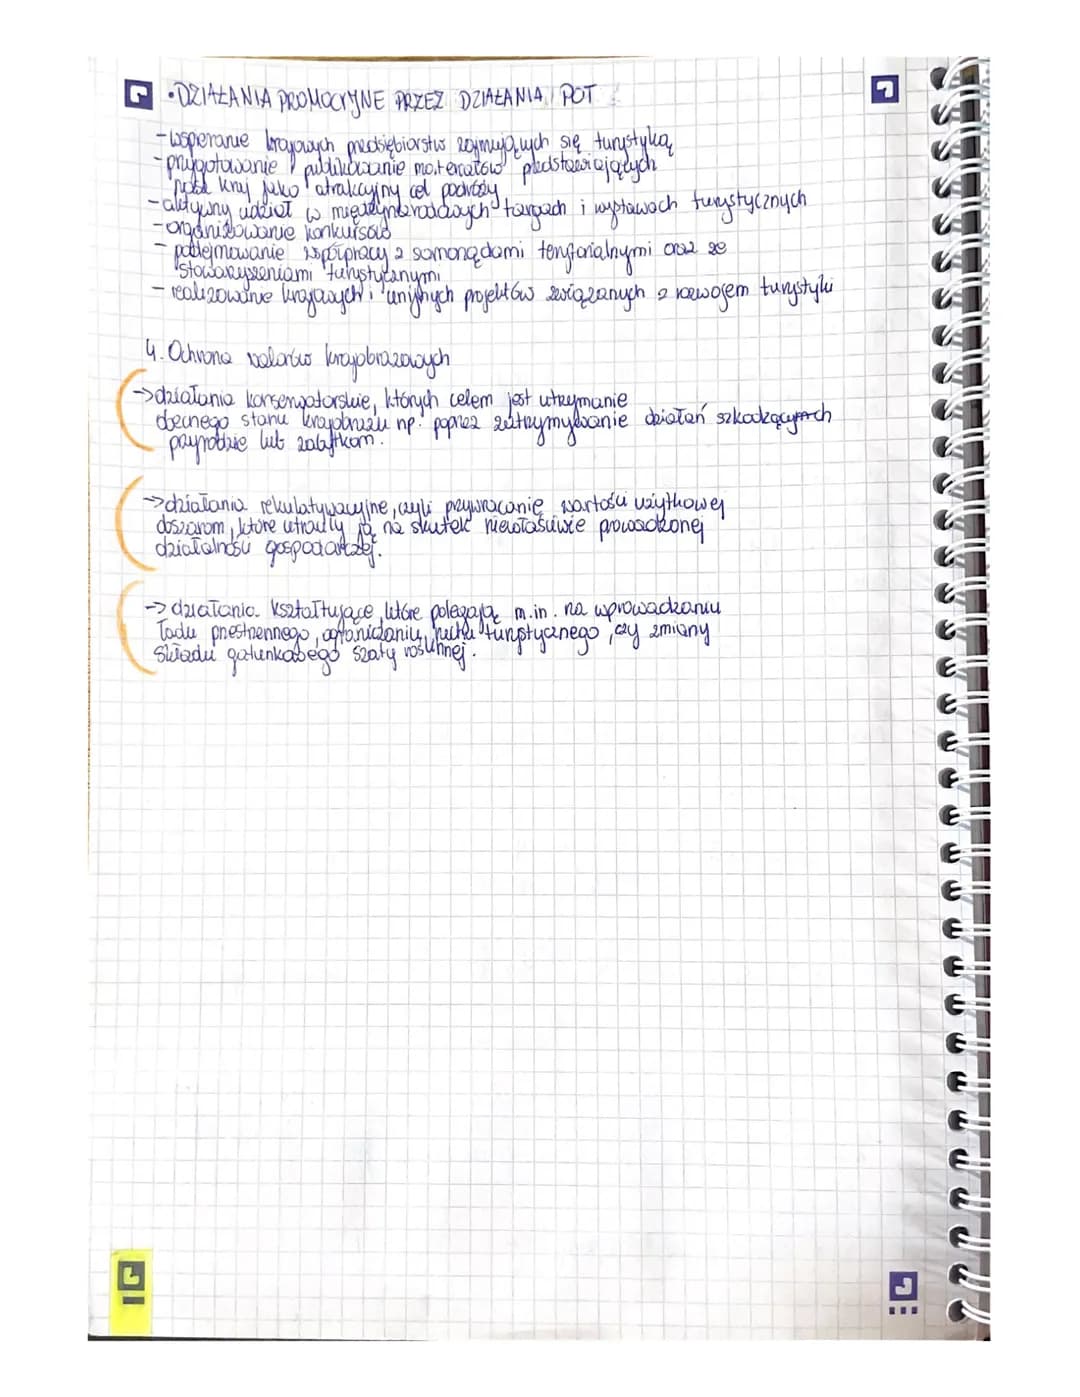 •DZIAŁANIA PROMOCYJNE PRZEZ DZIAŁANIA POT
-wspieranie krajowych przedsiębiorstw zajmujących się turystyką
-przygotowanie i publikowanie materiałów przedstawiających
nasz kraj jako atrakcyjny cel podróży
-aktywny udział w międzynarodowych targach i wystawach turystycznych
-organizowanie konkursów
- podejmowanie współpracy z samorządami terytorialnymi oraz ze
stowarzyszeniami turystycznymi
- realizowanie krajowych i unijnych projektów związanych z rozwojem turystyki
4. Ochrona walorów krajobrazowych
->działania konserwatorskie, których celem jest utrzymanie
obecnego stanu krajobrazu np. poprzez zatrzymywanie działań szkodzących
przyrodzie lub zabytkom.
->działania rekulatywacyjne, czyli przywracanie wartości użytkowej
obszarom, które utraciły ją na skutek niewłaściwie prowadzonej
działalności gospodarczej.
-> działania kształtujące, które polegają m.in. na wprowadzaniu
ładu przestrzennego, ograniczaniu ruchu turystycznego, czy zmiany
składu gatunkowego szaty roślinnej.